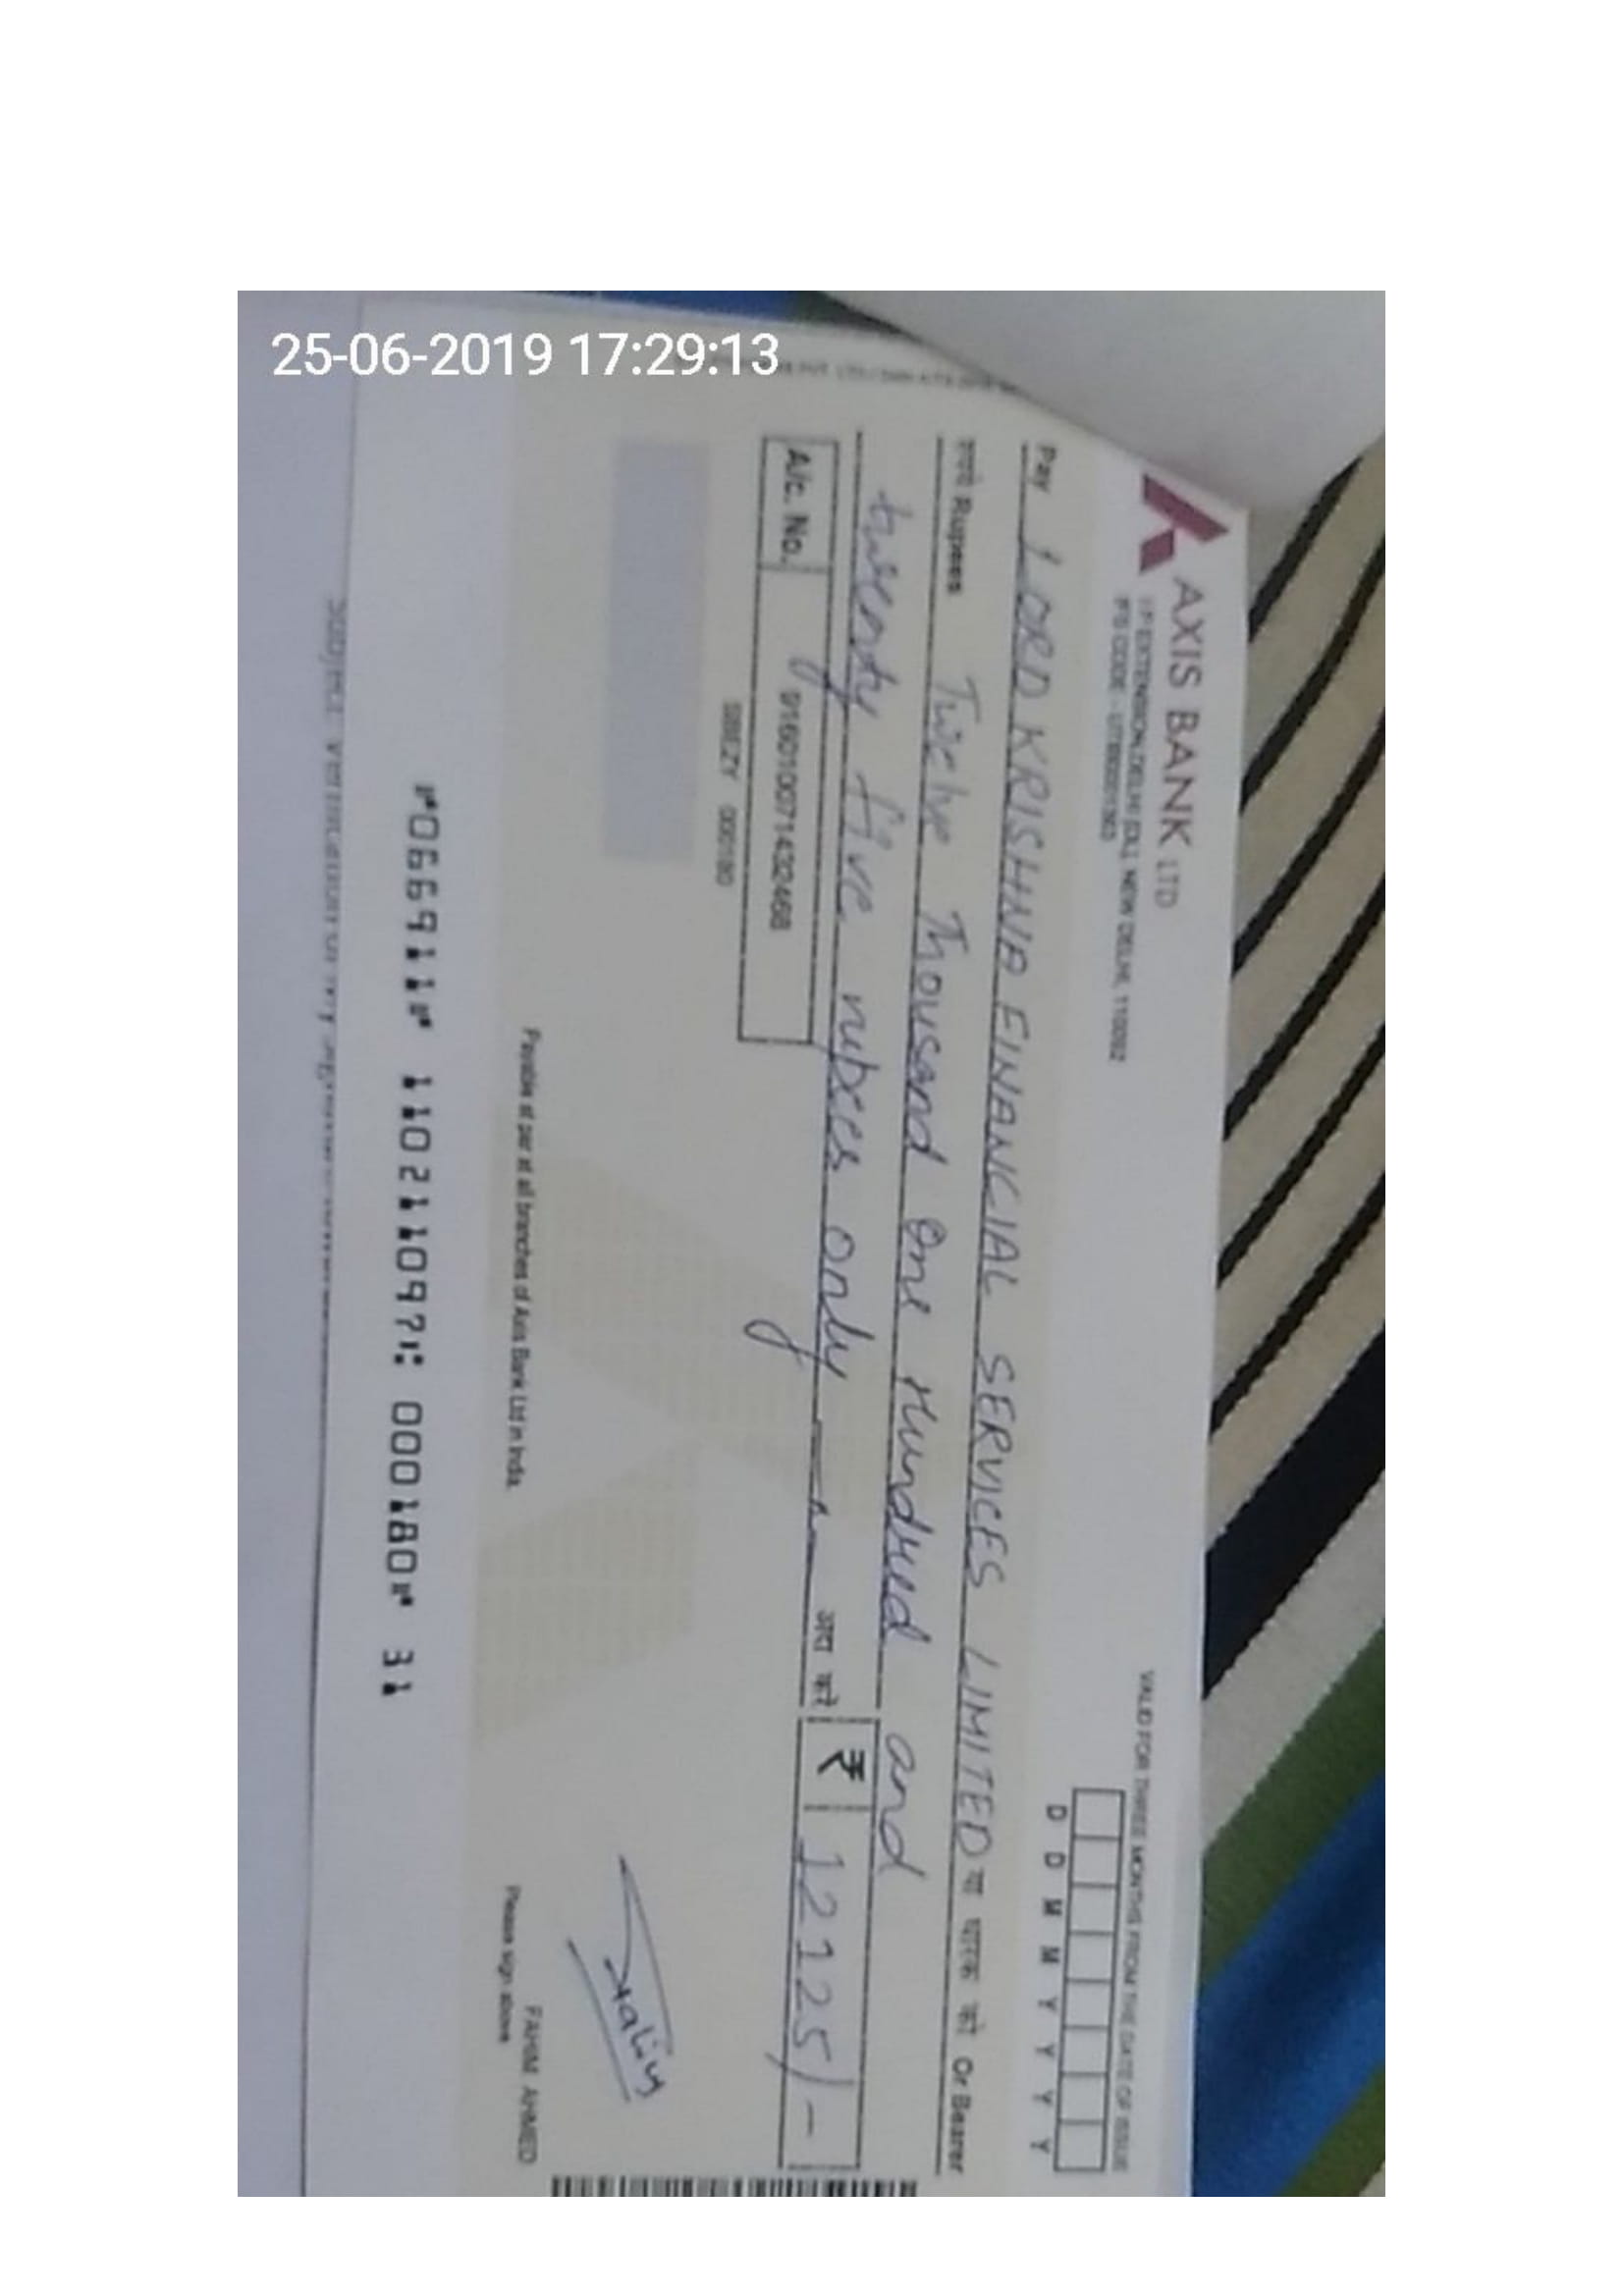 25-06-2019 17:29:13
AXIS BANK LTD
I P EXTENSION,DELHI [DL], NEW DELHI, 110092
VALID FOR THREE MONTHS FROM THE DATE OF ISSUE
D D M M Y Y Y Y
Pay LORD KRISHNA FINANCIAL SERVICES LIMITED या धारक को Or Bearer
रुपये Rupees Twelve Thousand One Hundred and
twenty five rupees only अदा करें ₹ 12125/-
A/c. No. 916010071432468
SBEZY 000180
FAHIM AHMED
Payable at par at all branches of Axis Bank Ltd in India.
Please sign above
⑈066911⑈ 110211097⑆ 000180⑈ 31